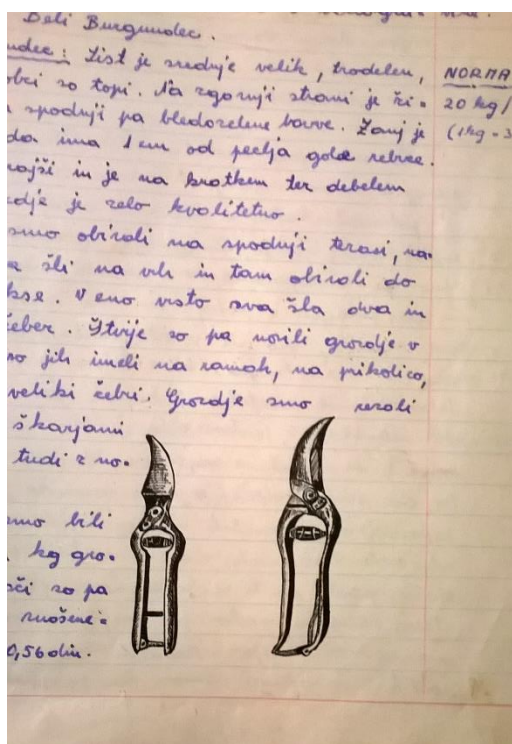 Beli Burgundec.
undec: List je srednje velik, trodelen,
robci so topi. Na zgornji strani je
spodnji pa bledozelene barve. Zanj je
da ima 1 cm od peclja gole rebrce.
in je na kratkem ter debelem
je zelo kvalitetno.
smo obirali na spodnji terasi, na-
šli na vrh in tam obirali do
V eno vrsto sva šla dva in
čeber. Štirje so pa nosili grozdje v
so jih imeli na ramah, na prikolico,
veliki čebri. Grozdje smo rezali
škarjami
tudi z no-
smo bili
kg gro-
so pa
0,56 din.
NORMA
20 kg/
(1 kg = 3